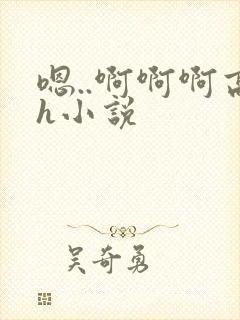 嗯..啊啊啊高
h小说
吴奇勇